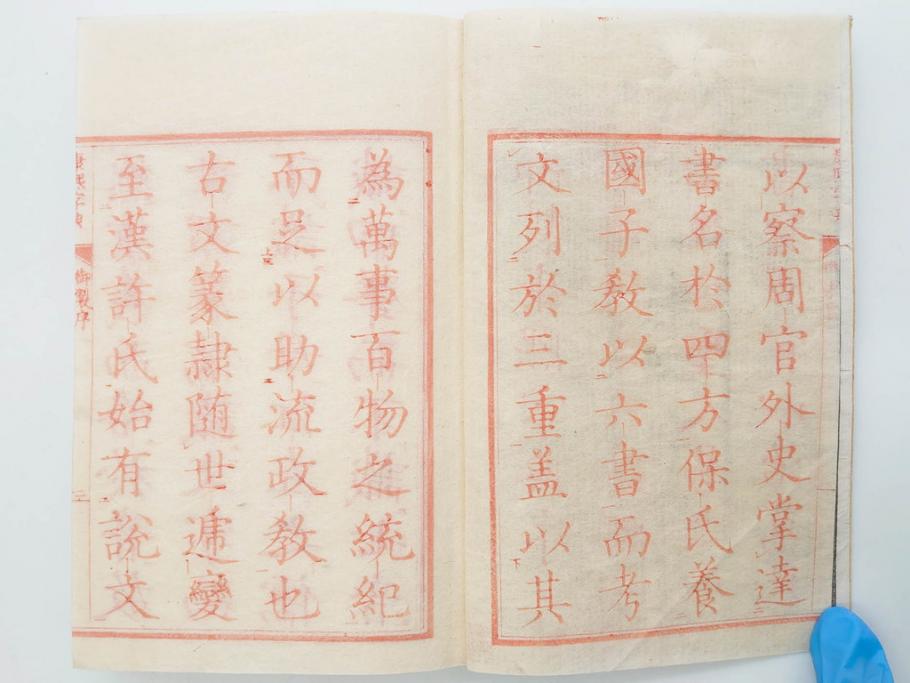 以察周官外史掌達
書名於四方保氏養
國子敎以六書而考
文列於三重盖以其
為萬事百物之統紀
而足以助流政敎也
古文篆隷随世遞變
至漢許氏始有說文
康熙字典
御製序